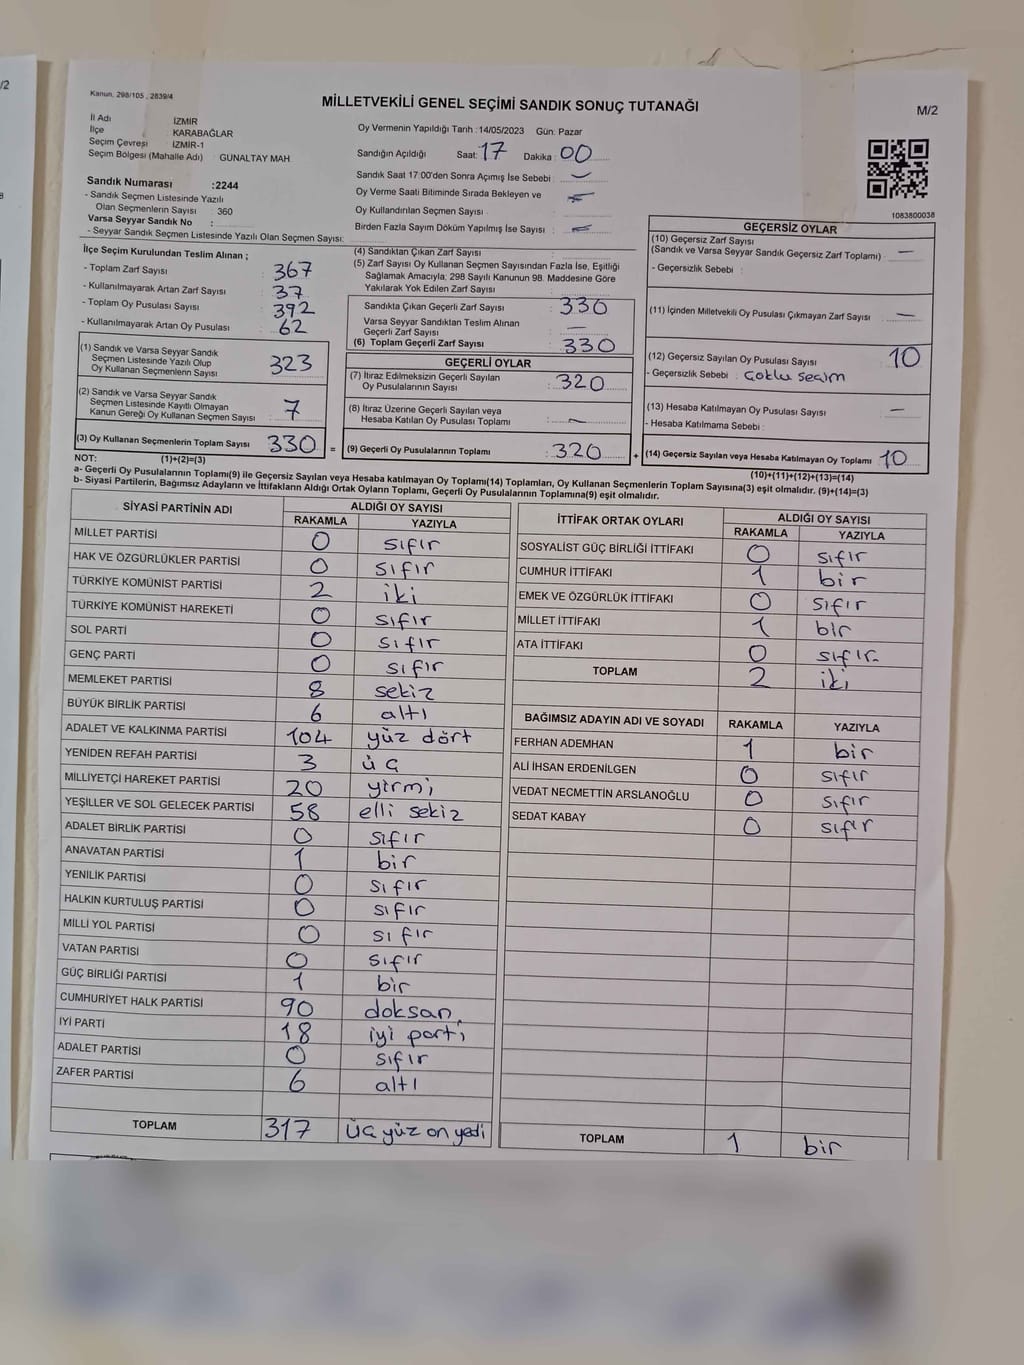 /2
Kanun, 298/105 , 2839/4
MİLLETVEKİLİ GENEL SEÇİMİ SANDIK SONUÇ TUTANAĞI
M/2
İl Adı İZMİR
İlçe KARABAĞLAR
Seçim Çevresi İZMİR-1
Seçim Bölgesi (Mahalle Adı) : GÜNALTAY MAH.
Oy Vermenin Yapıldığı Tarih :14/05/2023 Gün: Pazar
Sandığın Açıldığı Saat: 17 Dakika : 00
Sandık Saat 17:00'den Sonra Açımış İse Sebebi : –
Oy Verme Saati Bitiminde Sırada Bekleyen ve
Oy Kullandırılan Seçmen Sayısı : –
Birden Fazla Sayım Döküm Yapılmış İse Sayısı : –
Sandık Numarası :2244
- Sandık Seçmen Listesinde Yazılı
Olan Seçmenlerin Sayısı : 360
Varsa Seyyar Sandık No :
- Seyyar Sandık Seçmen Listesinde Yazılı Olan Seçmen Sayısı:
1083800038
İlçe Seçim Kurulundan Teslim Alınan ;
- Toplam Zarf Sayısı : 367
- Kullanılmayarak Artan Zarf Sayısı : 37
- Toplam Oy Pusulası Sayısı : 392
- Kullanılmayarak Artan Oy Pusulası : 62
(1) Sandık ve Varsa Seyyar Sandık
Seçmen Listesinde Yazılı Olup
Oy Kullanan Seçmenlerin Sayısı : 323
(2) Sandık ve Varsa Seyyar Sandık
Seçmen Listesinde Kayıtlı Olmayan
Kanun Gereği Oy Kullanan Seçmen Sayısı : 7
(3) Oy Kullanan Seçmenlerin Toplam Sayısı 330
(4) Sandıktan Çıkan Zarf Sayısı :
(5) Zarf Sayısı Oy Kullanan Seçmen Sayısından Fazla İse, Eşitliği
Sağlamak Amacıyla; 298 Sayılı Kanunun 98. Maddesine Göre
Yakılarak Yok Edilen Zarf Sayısı :
Sandıkta Çıkan Geçerli Zarf Sayısı : 330
Varsa Seyyar Sandıktan Teslim Alınan
Geçerli Zarf Sayısı : –
(6) Toplam Geçerli Zarf Sayısı : 330
GEÇERLİ OYLAR
(7) İtiraz Edilmeksizin Geçerli Sayılan
Oy Pusulalarının Sayısı : 320
(8) İtiraz Üzerine Geçerli Sayılan veya
Hesaba Katılan Oy Pusulası Toplamı : –
= (9) Geçerli Oy Pusulalarının Toplamı : 320
GEÇERSİZ OYLAR
(10) Geçersiz Zarf Sayısı
(Sandık ve Varsa Seyyar Sandık Geçersiz Zarf Toplamı) : –
- Geçersizlik Sebebi :
(11) İçinden Milletvekili Oy Pusulası Çıkmayan Zarf Sayısı : –
(12) Geçersiz Sayılan Oy Pusulası Sayısı : 10
- Geçersizlik Sebebi : Çoklu seçim
(13) Hesaba Katılmayan Oy Pusulası Sayısı : –
- Hesaba Katılmama Sebebi :
+ (14) Geçersiz Sayılan veya Hesaba Katılmayan Oy Toplamı 10
NOT: (1)+(2)=(3)
(10)+(11)+(12)+(13)=(14)
a- Geçerli Oy Pusulalarının Toplamı(9) ile Geçersiz Sayılan veya Hesaba katılmayan Oy Toplamı(14) Toplamları, Oy Kullanan Seçmenlerin Toplam Sayısına(3) eşit olmalıdır. (9)+(14)=(3)
b- Siyasi Partilerin, Bağımsız Adayların ve İttifakların Aldığı Ortak Oyların Toplamı, Geçerli Oy Pusulalarının Toplamına(9) eşit olmalıdır.
SİYASİ PARTİNİN ADI ALDIĞI OY SAYISI
RAKAMLA YAZIYLA
MİLLET PARTİSİ 0 sıfır
HAK VE ÖZGÜRLÜKLER PARTİSİ 0 sıfır
TÜRKİYE KOMÜNİST PARTİSİ 2 iki
TÜRKİYE KOMÜNİST HAREKETİ 0 sıfır
SOL PARTİ 0 sıfır
GENÇ PARTİ 0 sıfır
MEMLEKET PARTİSİ 8 sekiz
BÜYÜK BİRLİK PARTİSİ 6 altı
ADALET VE KALKINMA PARTİSİ 104 yüz dört
YENİDEN REFAH PARTİSİ 3 üç
MİLLİYETÇİ HAREKET PARTİSİ 20 yirmi
YEŞİLLER VE SOL GELECEK PARTİSİ 58 elli sekiz
ADALET BİRLİK PARTİSİ 0 sıfır
ANAVATAN PARTİSİ 1 bir
YENİLİK PARTİSİ 0 sıfır
HALKIN KURTULUŞ PARTİSİ 0 sıfır
MİLLİ YOL PARTİSİ 0 sıfır
VATAN PARTİSİ 0 sıfır
GÜÇ BİRLİĞİ PARTİSİ 1 bir
CUMHURİYET HALK PARTİSİ 90 doksan
İYİ PARTİ 18 iyi parti
ADALET PARTİSİ 0 sıfır
ZAFER PARTİSİ 6 altı
TOPLAM 317 üç yüz on yedi
İTTİFAK ORTAK OYLARI ALDIĞI OY SAYISI
RAKAMLA YAZIYLA
SOSYALİST GÜÇ BİRLİĞİ İTTİFAKI 0 sıfır
CUMHUR İTTİFAKI 1 bir
EMEK VE ÖZGÜRLÜK İTTİFAKI 0 sıfır
MİLLET İTTİFAKI 1 bir
ATA İTTİFAKI 0 sıfır
TOPLAM 2 iki
BAĞIMSIZ ADAYIN ADI VE SOYADI RAKAMLA YAZIYLA
FERHAN ADEMHAN 1 bir
ALİ İHSAN ERDENİLGEN 0 sıfır
VEDAT NECMETTİN ARSLANOĞLU 0 sıfır
SEDAT KABAY 0 sıfır
TOPLAM 1 bir